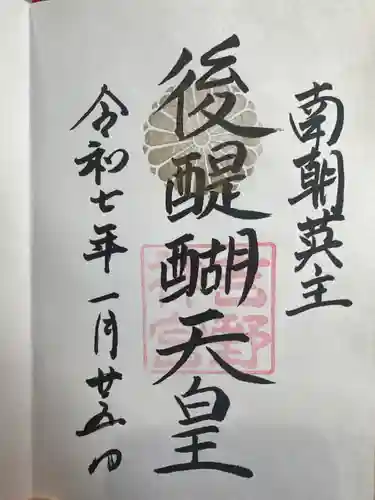 南朝英主
後醍醐天皇
吉野神宮
令和七年一月廿五日